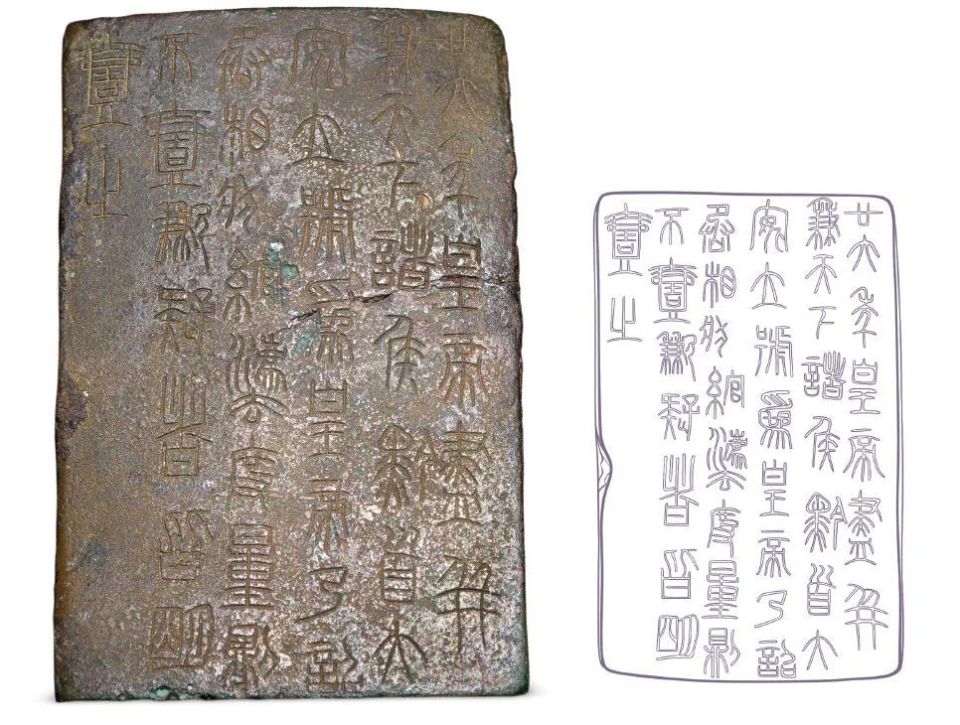 廿六年皇帝盡并
兼天下諸侯黔首大
安立號為皇帝乃詔
丞相狀綰灋度量則
不壹歉疑者皆明
壹之
廿六年皇帝盡并
兼天下諸侯黔首大
安立號為皇帝乃詔
丞相狀綰灋度量則
不壹歉疑者皆明
壹之